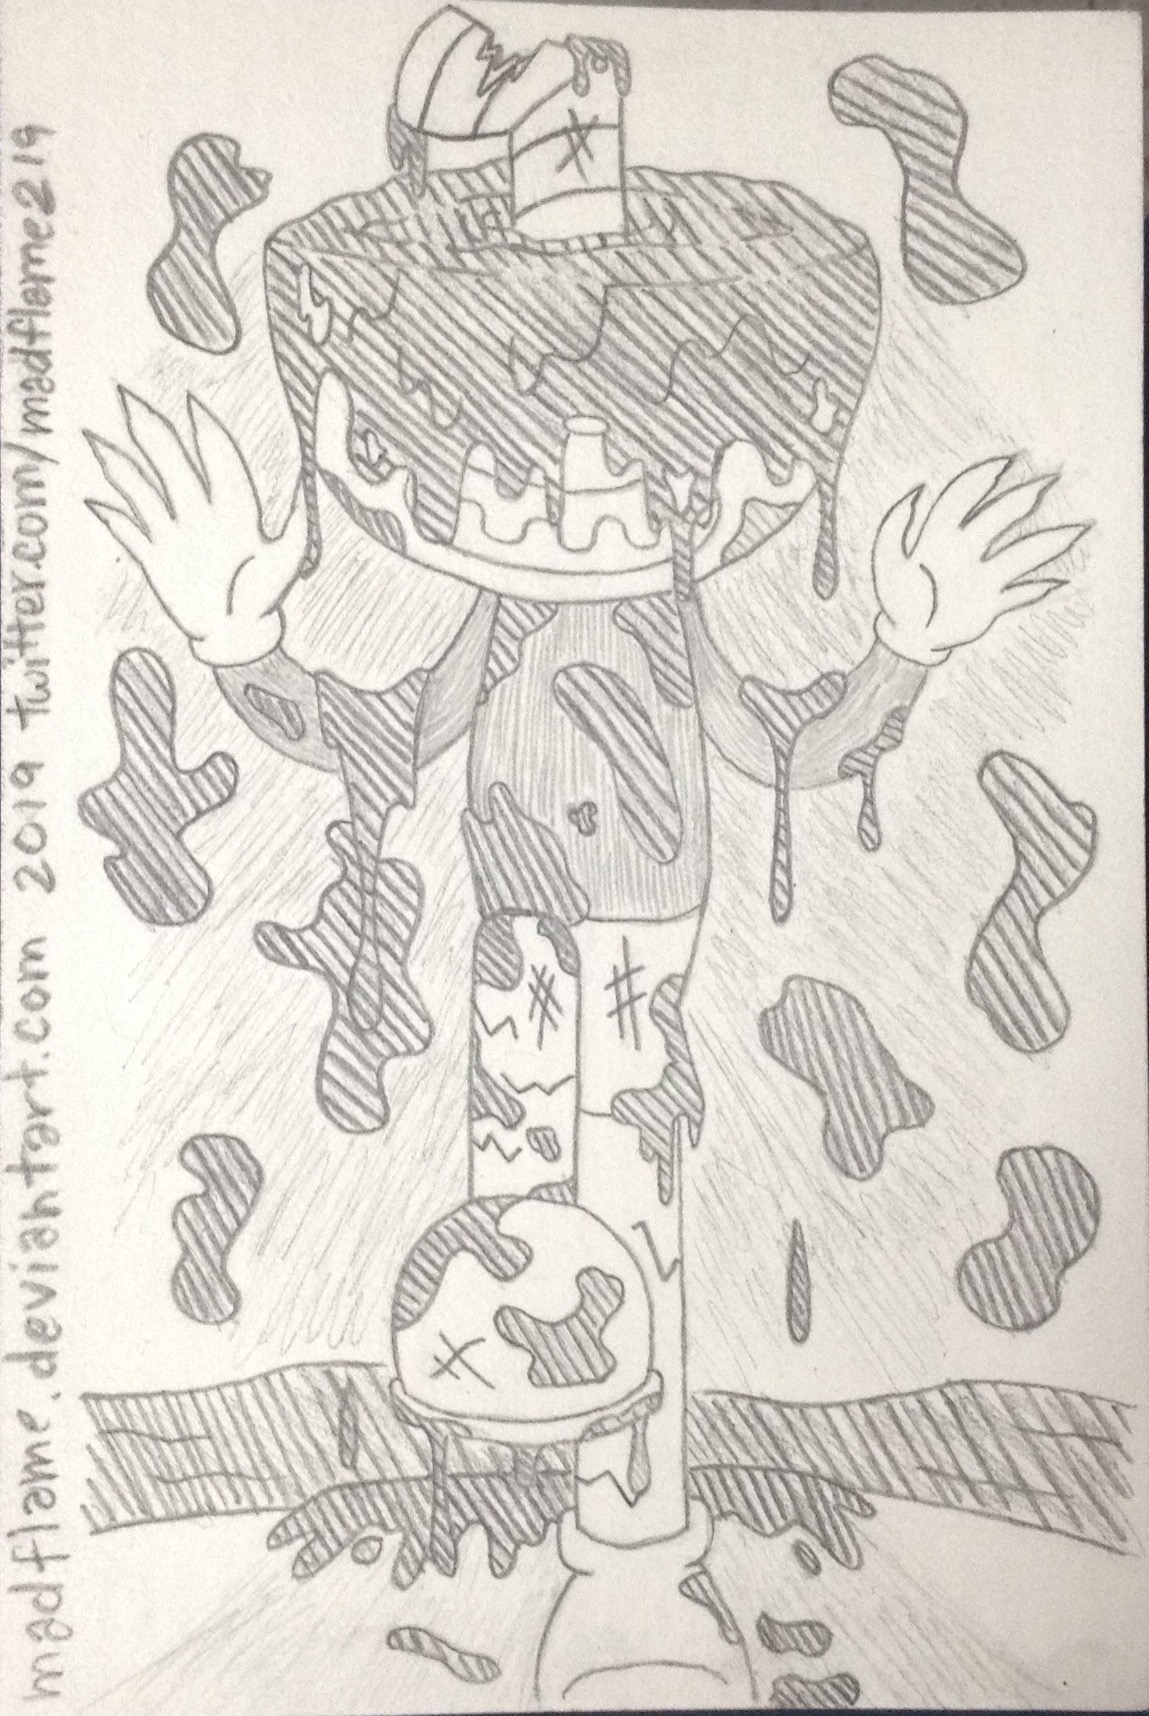 madflame.deviantart.com 2019 twitter.com/madflame219